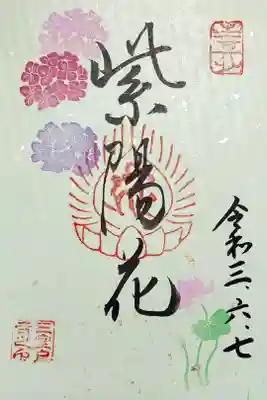 紫陽花
令和三、六、七